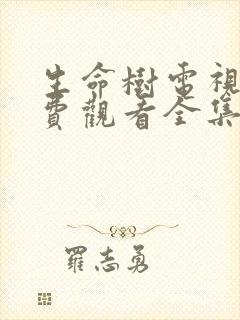 生命樹電視
費觀看全集
羅志勇